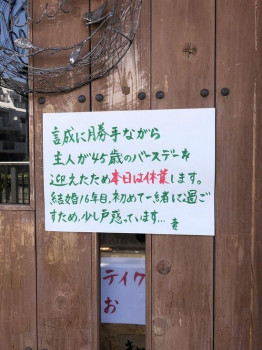 誠に勝手ながら
主人が45歳のバースデーを
迎えたため本日は休業します。
結婚16年目、初めて一緒に過ご
すため、少し戸惑っています…
妻
テイク
お